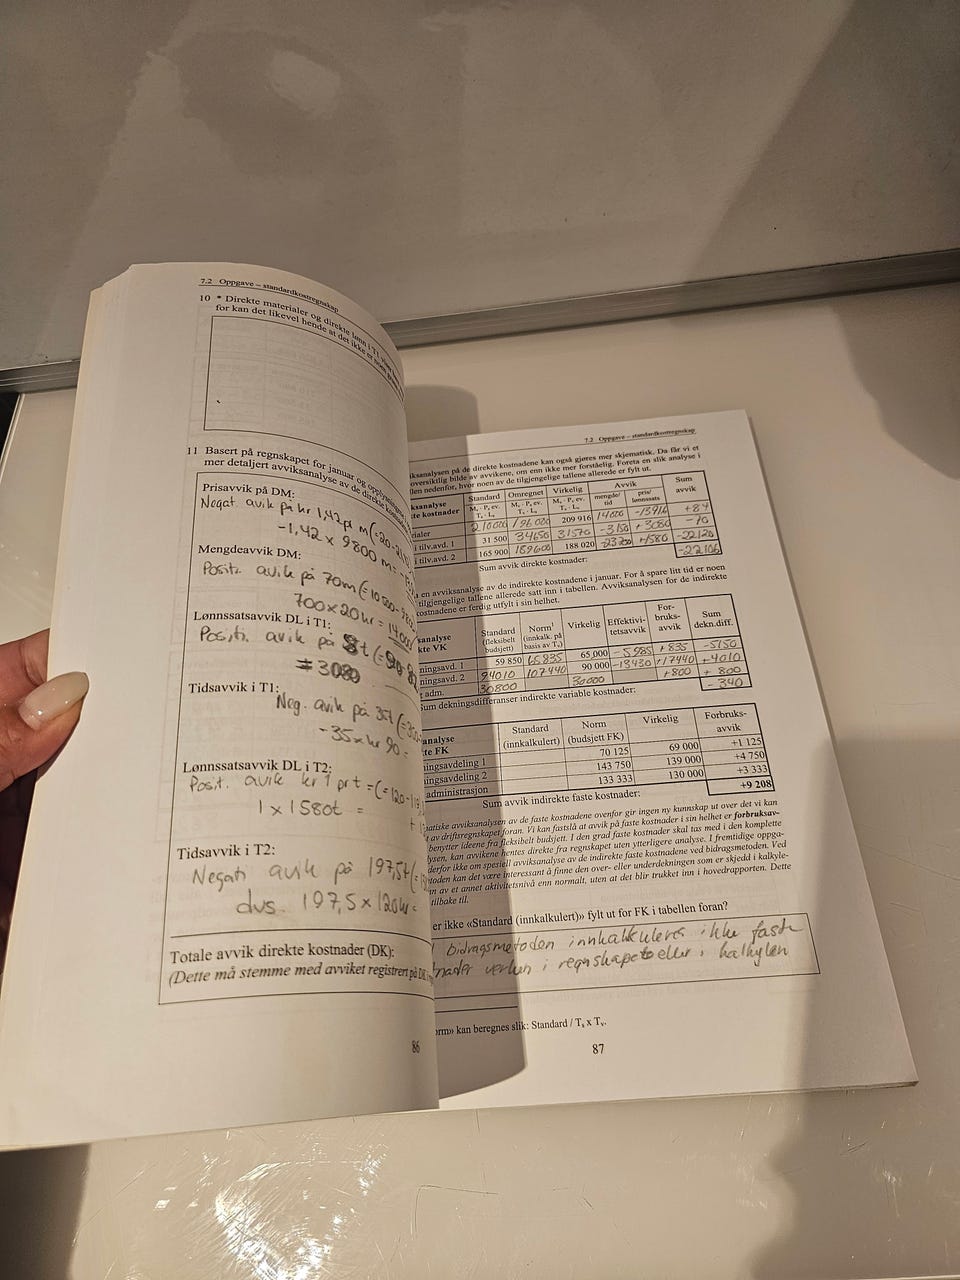 7.2 Oppgave – standardkostregnskap
10 * Direkte materialer og direkte lønn i T1
for kan det likevel hende at det ikke er noen
11 Basert på regnskapet for januar og
mer detaljert avviksanalyse av de direkte
Prisavvik på DM:
Negat avik på kr 1,42 pr m (=20-21,
-1,42 x 9800 m =
Mengdeavvik DM:
Positi. avik på 70m (=10 500-
700x20kr = 14000
Lønnssatsavvik DL i T1:
Positi. avik på 8t (=90-
= 3080
Tidsavvik i T1:
Neg. avik på 35t (=350
-35x kr 90 =
Lønnssatsavvik DL i T2:
Posit. avik kr 1 pr t = (=120-119
1 x 1580t =
Tidsavvik i T2:
Negati avik på 197,5t (=
dvs. 197,5x120kr =
Totale avvik direkte kostnader (DK):
(Dette må stemme med avviket registrert på DK
86
7.2 Oppgave – standardkostregnskap
ksanalysen på de direkte kostnadene kan også gjøres mer skjematisk. Da får vi et
oversiktlig bilde av avvikene, om enn ikke mer forståelig. Foreta en slik analyse i
llen nedenfor, hvor noen av de tilgjengelige tallene allerede er fylt ut.
ksanalyse Standard Omregnet Virkelig Avvik Sum
kte kostnader mengde/ pris/ avvik
tid lønnssats
rialer 210000 196 000 209 916 14000 -13916 +84
i tilv.avd. 1 31 500 34650 31570 -3150 +3080 -70
i tilv.avd. 2 165 900 189600 188 020 -23700 +1580 -22120
Sum avvik direkte kostnader: -22106
en avviksanalyse av de indirekte kostnadene i januar. For å spare litt tid er noen
tilgjengelige tallene allerede satt inn i tabellen. Avviksanalysen for de indirekte
kostnadene er ferdig utfylt i sin helhet.
sanalyse Standard Norm¹ Virkelig Effektivi- For- Sum
kte VK (fleksibelt (innkalk. på tetsavvik bruks- dekn.diff.
budsjett) basis av Tᵥ) avvik
ningsavd. 1 59 850 65835 65 000 -5985 +835 -5150
ningsavd. 2 94010 107440 90 000 -13430 +17440 +4010
adm. 30800 30000 +800 + 800
Sum dekningsdifferanser indirekte variable kostnader: - 340
analyse Standard Norm Virkelig Forbruks-
kte FK (innkalkulert) (budsjett FK) avvik
ningsavdeling 1 70 125 69 000 +1 125
ningsavdeling 2 143 750 139 000 +4 750
administrasjon 133 333 130 000 +3 333
Sum avvik indirekte faste kostnader: +9 208
matiske avviksanalysen av de faste kostnadene ovenfor gir ingen ny kunnskap ut over det vi kan
av driftsregnskapet foran. Vi kan fastslå at avvik på faste kostnader i sin helhet er forbruksav-
benytter ideene fra fleksibelt budsjett. I den grad faste kostnader skal tas med i den komplette
lysen, kan avvikene hentes direkte fra regnskapet uten ytterligere analyse. I fremtidige oppga-
derfor ikke om spesiell avviksanalyse av de indirekte faste kostnadene ved bidragsmetoden. Ved
toden kan det være interessant å finne den over- eller underdekningen som er skjedd i kalkyle-
n av et annet aktivitetsnivå enn normalt, uten at det blir trukket inn i hovedrapporten. Dette
tilbake til.
er ikke «Standard (innkalkulert)» fylt ut for FK i tabellen foran?
bidragsmetoden innkalkuleres ikke faste
nader verken i regnskapet eller i kalkylen
orm» kan beregnes slik: Standard / Tₛ x Tᵥ.
87